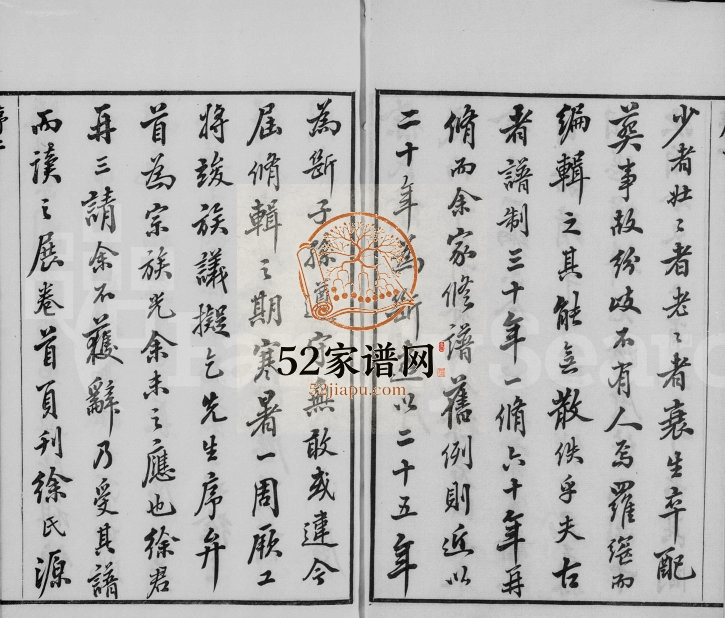 少者壯〻者老〻者衰生卒配
葬事故紛歧不有人焉羅而
編輯之其能無散佚乎夫古
者譜制三十年一脩六十年再
脩而余家修譜舊例則近以
二十年為斷遠以二十五年
為斷子孫遵守無敢或違今
屆脩輯之期寒暑一周厥工
將竣族議擬乞先生序弁
首為宗族光余未之應也徐君
再三請余不獲辭乃受其譜
而讀之展卷首頁刊徐氏源
52家谱网
52jiapu.com